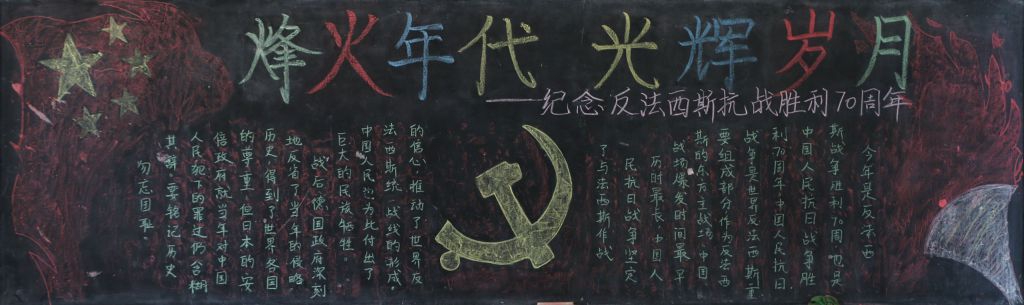 烽火年代 光辉岁月
——纪念反法西斯抗战胜利70周年
今年是反法西
斯战争胜利70周 也是
中国人民抗日战争胜
利70周年中国人民抗日
战争是世界反法西斯重
要组成部分作为反法西
斯的东方主战场,中国
战场爆发时间最早
历时最长,中国人
民抗日战争坚定
了与法西斯作战
的信心,推动了世界反
法西斯统一战线的形成
中国人民也为此付出了
巨大的民族牺牲。
战后,德国政府深刻
地反省了当年的侵略
历史,得到了世界各国
的尊重,但日本的安
倍政府就当年对中国
人民犯下的罪过仍含糊
其辞。要铭记历史
勿忘国耻。